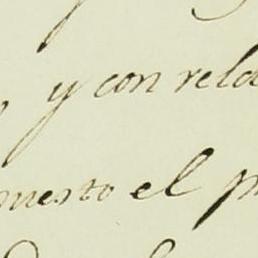 y con rela
mesto el p